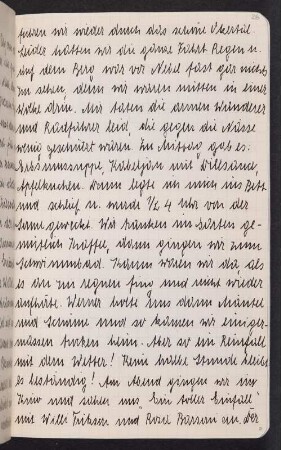 fuhren wir wieder durch das schöne Obertal.
Leider hatten wir die ganze Fahrt Regen u.
auf dem Berg war vor Nebel fast gar nichts
zu sehen, denn wir waren mitten in einer
Wolke drin. Mir taten die armen Wanderer
und Radfahrer leid, die gegen die Nässe
wenig geschützt waren. Zu Mittag gab es:
Kabeljau mit Dillsauce,
Apfelkuchen. Dann legte ich mich ins Bett
und schlief u. wurde 1/2 4 Uhr von der
Sonne geweckt. Wir tranken im Garten ge-
mütlich Kaffee, dann gingen wir zum
Schwimmbad. Kaum waren wir da als
es an zu regnen fing und nicht wieder
aufhörte. Werner holte uns dann Mäntel
und Schirme und so kamen wir einiger-
massen trocken heim. Aber so ein Reinfall
mit dem Wetter! Kein halbe Stunde bleibt
es beständig! Am Abend gingen wir ins
Kino und sahen uns "Ein toller Einfall"
mit Willi Fritsch und Rosy Barsony an. Der